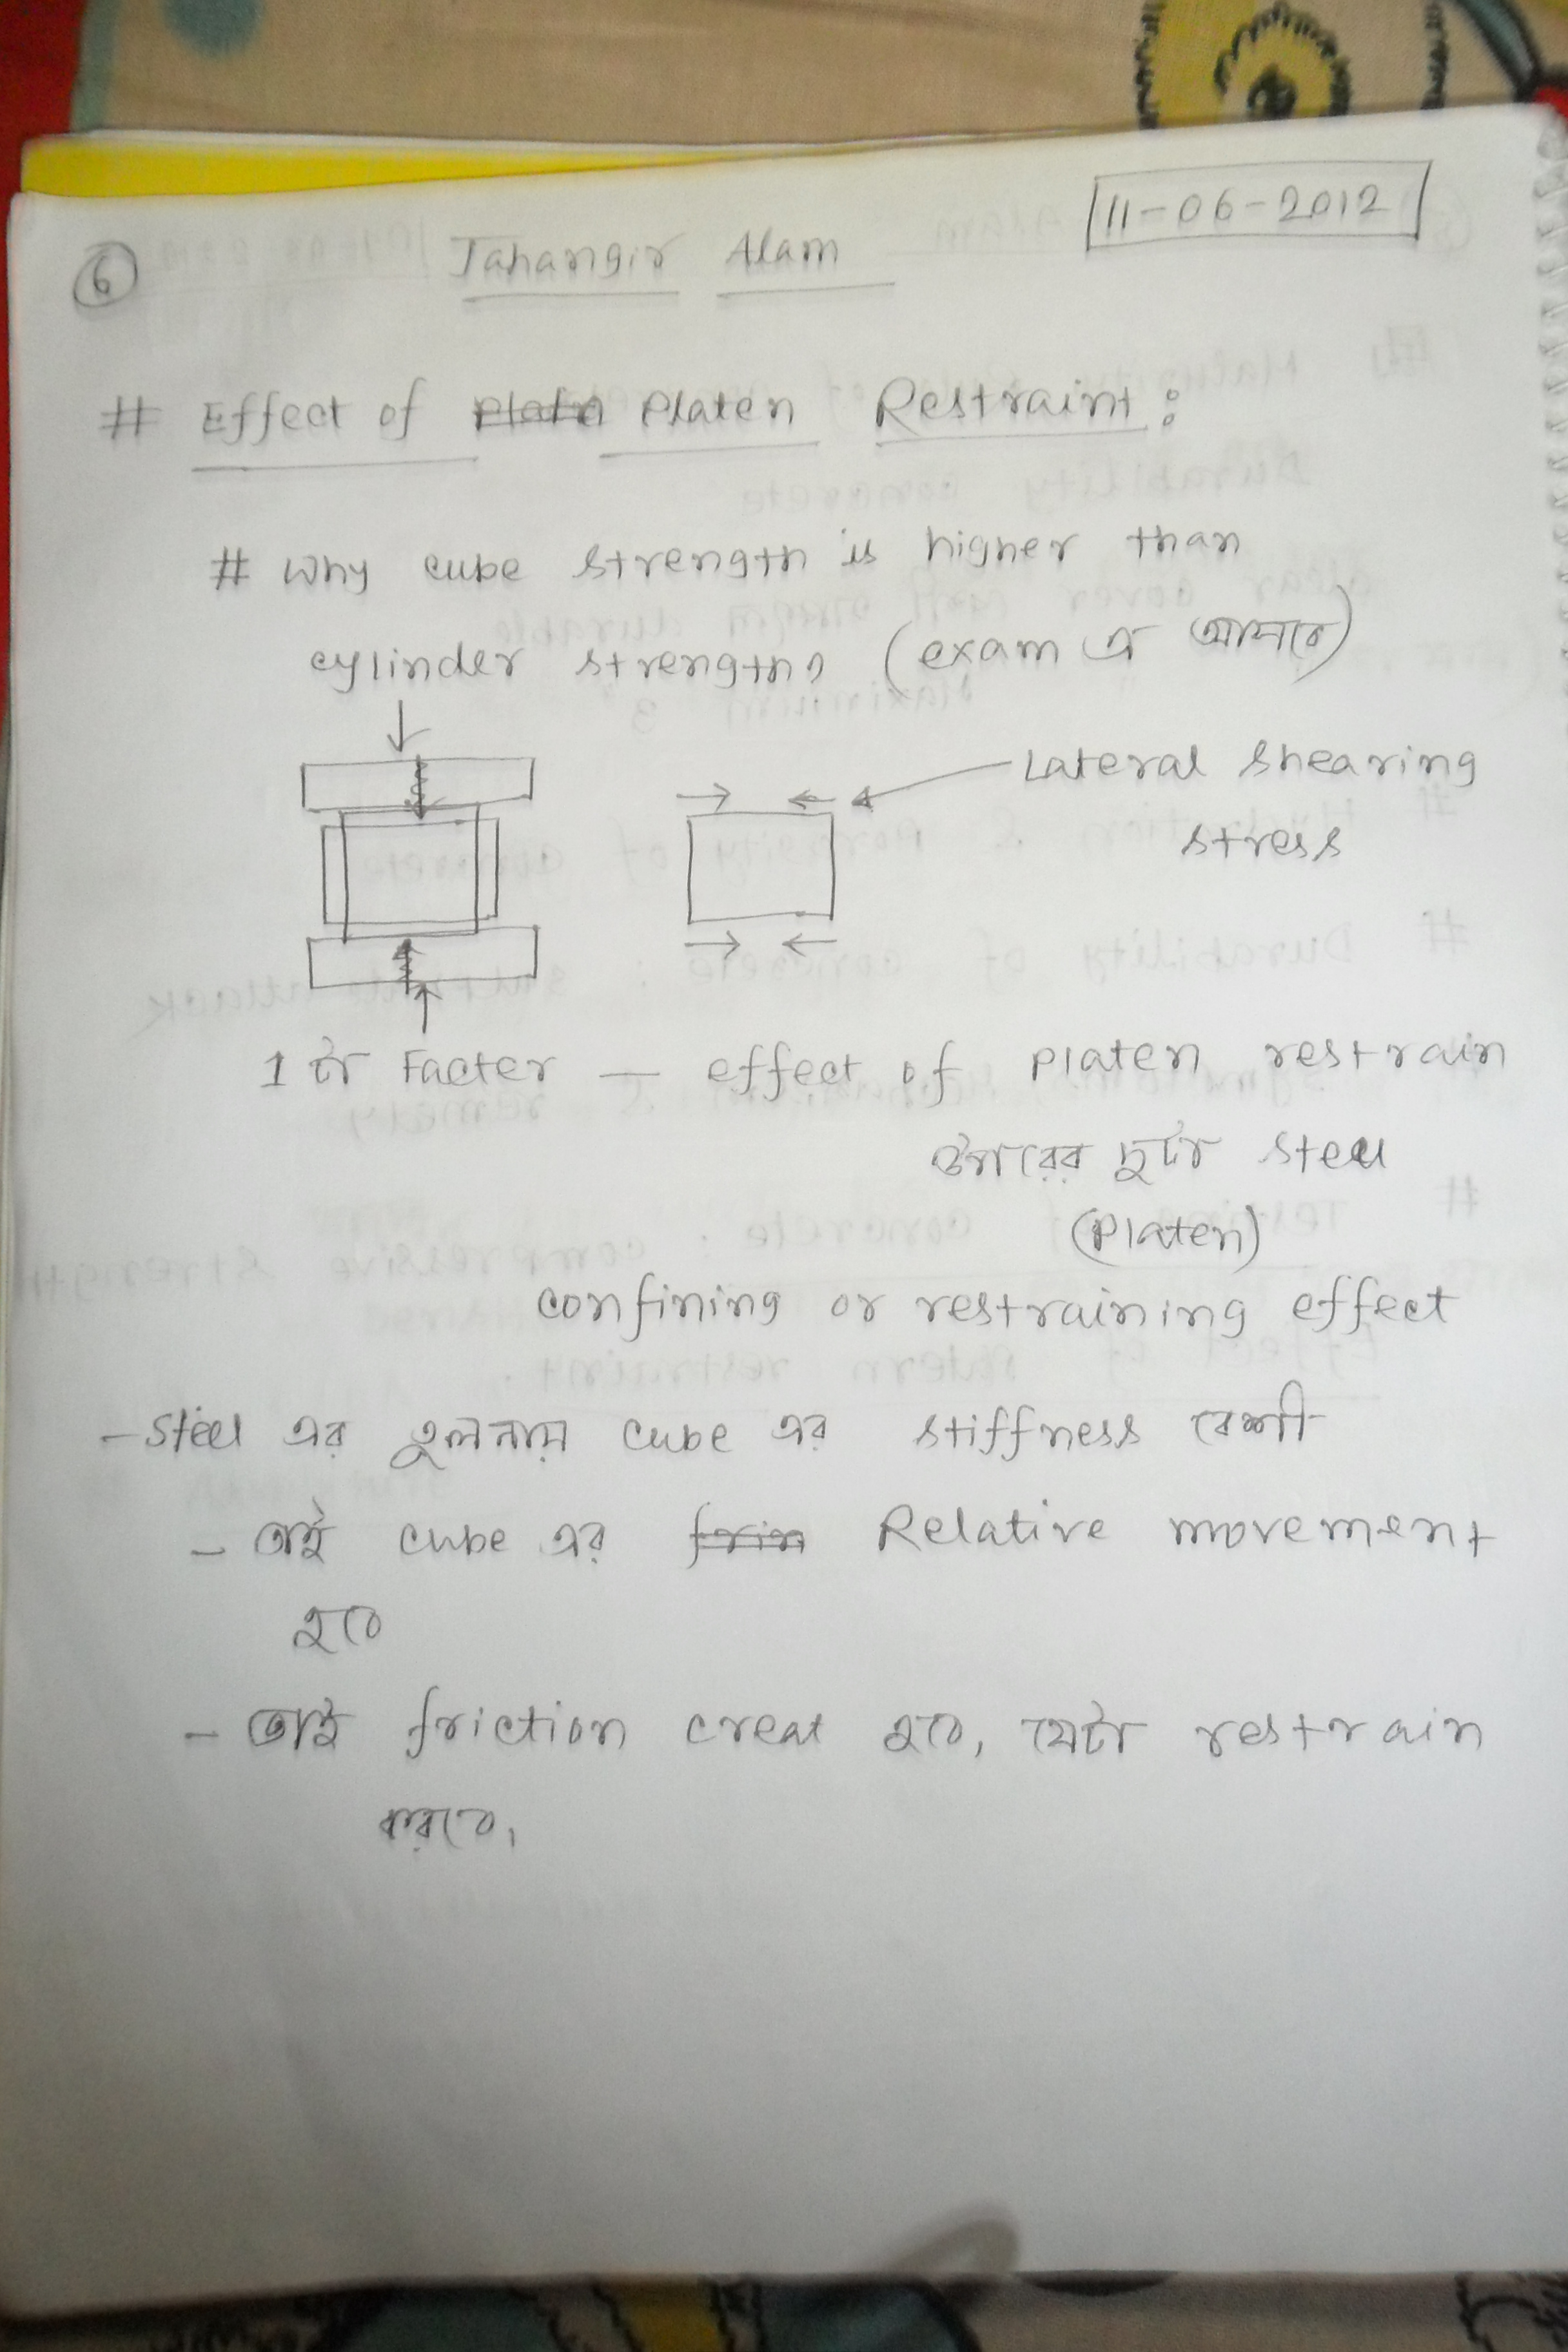 6 Jahangir Alam 11-06-2012
# Effect of Platen Restraint:
# Why cube strength is higher than
cylinder strength? (exam এ আসবে)
Lateral Shearing
stress
1 টা Facter — effect of Platen restrain
উপরের দুটা steel
(Platen)
confining or restraining effect
- Steel এর তুলনায় cube এর stiffness বেশী
- তাই cube এর Relative movement
হবে
- তাই friction creat হবে, যেটা restrain
করবে,